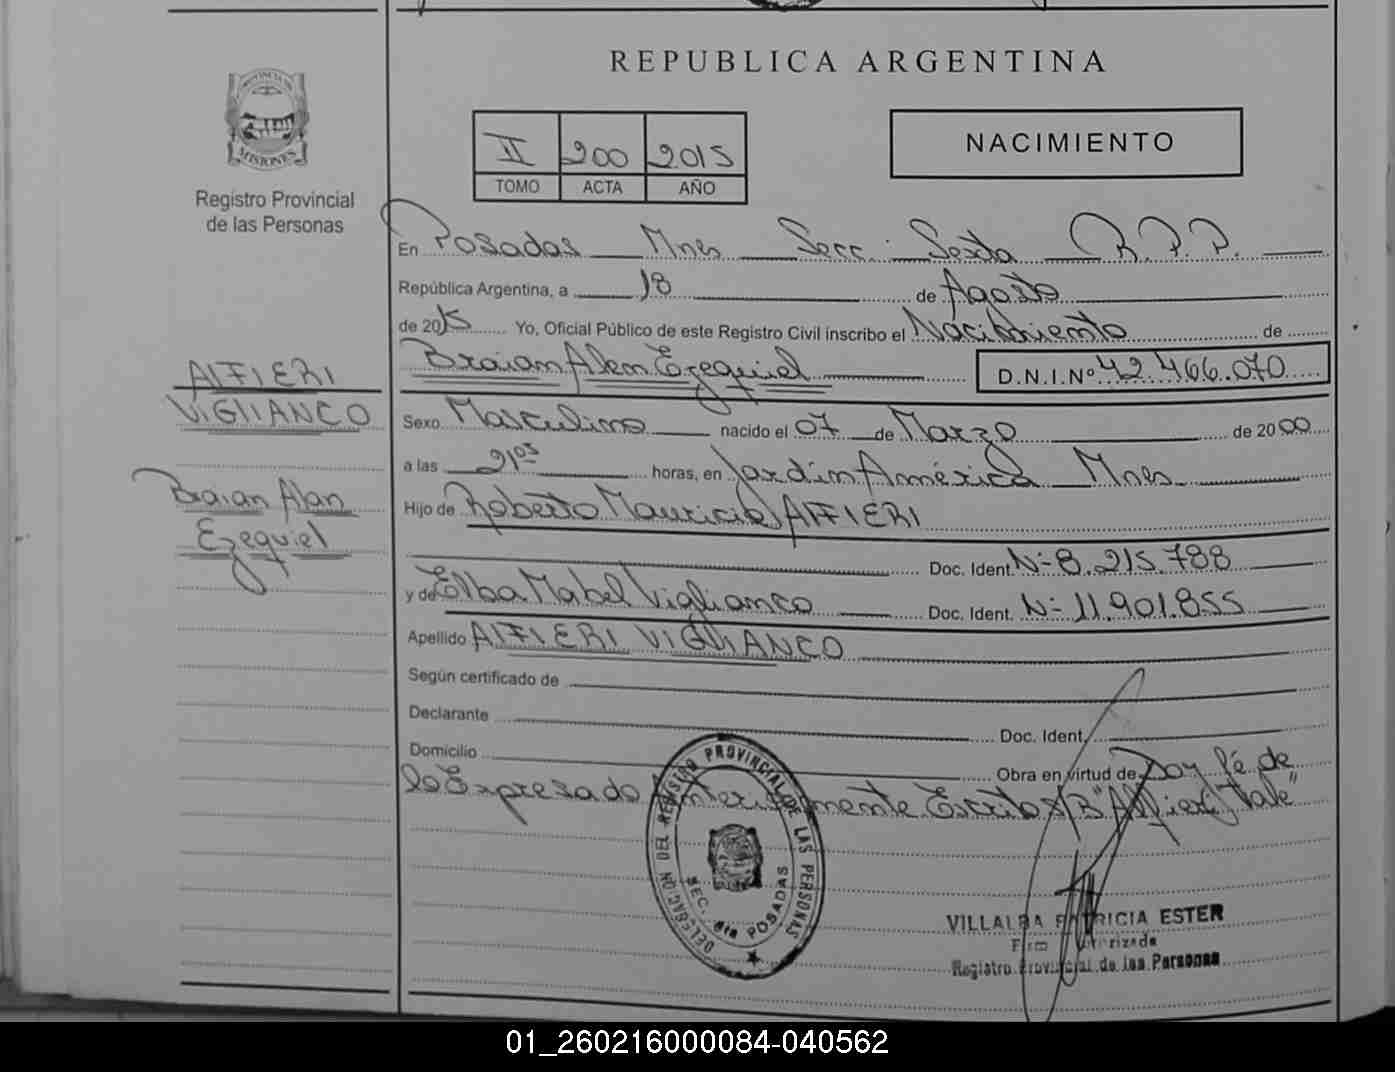 REPUBLICA ARGENTINA
PROVINCIA DE
MISIONES
Registro Provincial
de las Personas
II 200 2015
TOMO ACTA AÑO
NACIMIENTO
En Posadas Mnes Secc: Sexta R.P.P.
República Argentina, a 18 de Agosto
de 2015 Yo, Oficial Público de este Registro Civil inscribo el Nacimiento de
Braian Alan Ezequiel D.N.I.Nº 42.466.070
ALFIERI
VIGLIANCO
Braian Alan
Ezequiel
Sexo Masculino nacido el 07 de Marzo de 2000
a las 21 05 horas, en Jardín América Mnes
Hijo de Roberto Mauricio ALFIERI
Doc. Ident. Nº 8.215.788
y de Elba Mabel Viglianco Doc. Ident. Nº 11.901.855
Apellido ALFIERI VIGLIANCO
Según certificado de
Declarante Doc. Ident.
Domicilio Obra en virtud de Doy fé de
lo Expresado Anteriormente Escrito S/B "Alfieri" Vale"
DELEGACION DEL REGISTRO PROVINCIAL DE LAS PERSONAS
SEC. 6ta POSADAS
VILLALBA PATRICIA ESTER
Firma Autorizada
Registro Provincial de las Personas
01_260216000084-040562